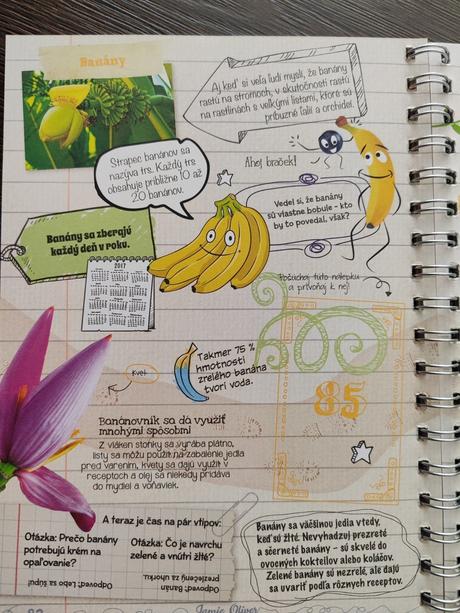 Banány
Aj keď si veľa ľudí myslí, že banány
rastú na stromoch, v skutočnosti rastú
na rastlinách s veľkými listami, ktoré sú
príbuzné ľalií a orchideí.
Strapec banánov sa
nazýva trs. Každý trs
obsahuje približne 10 až
20 banánov.
Ahej braček!
Vedel si, že banány
sú vlastne bobule - kto
by to povedal, však?
Banány sa zberajú
každý deň v roku.
2017
Počúchaj túto nálepku
a privoňaj k nej!
Takmer 75 %
hmotnosti
zrelého banána
tvorí voda.
Kvet
85
Banánovník sa dá využiť
mnohými spôsobmi
Z vláken stonky sa vyrába plátno,
listy sa môžu použiť na zabalenie jedla
pred varením, kvety sa dajú využiť v
receptoch a olej sa niekedy pridáva
do mydiel a voňaviek.
A teraz je čas na pár vtipov:
Otázka: Prečo banány
potrebujú krém na
opaľovanie?
Odpoveď: Lebo sa šúpu!
Otázka: Čo je navrchu
zelené a vnútri žlté?
Odpoveď: Banán
prezlečený za uhorku.
Banány sa väčšinou jedia vtedy,
keď sú žlté. Nevyhadzuj prezreté
a sčerneté banány – sú skvelé do
ovocných kokteilov alebo koláčov.
Zelené banány sú nezrelé, ale dajú
sa uvariť podľa rôznych receptov.
Jamie Oliver